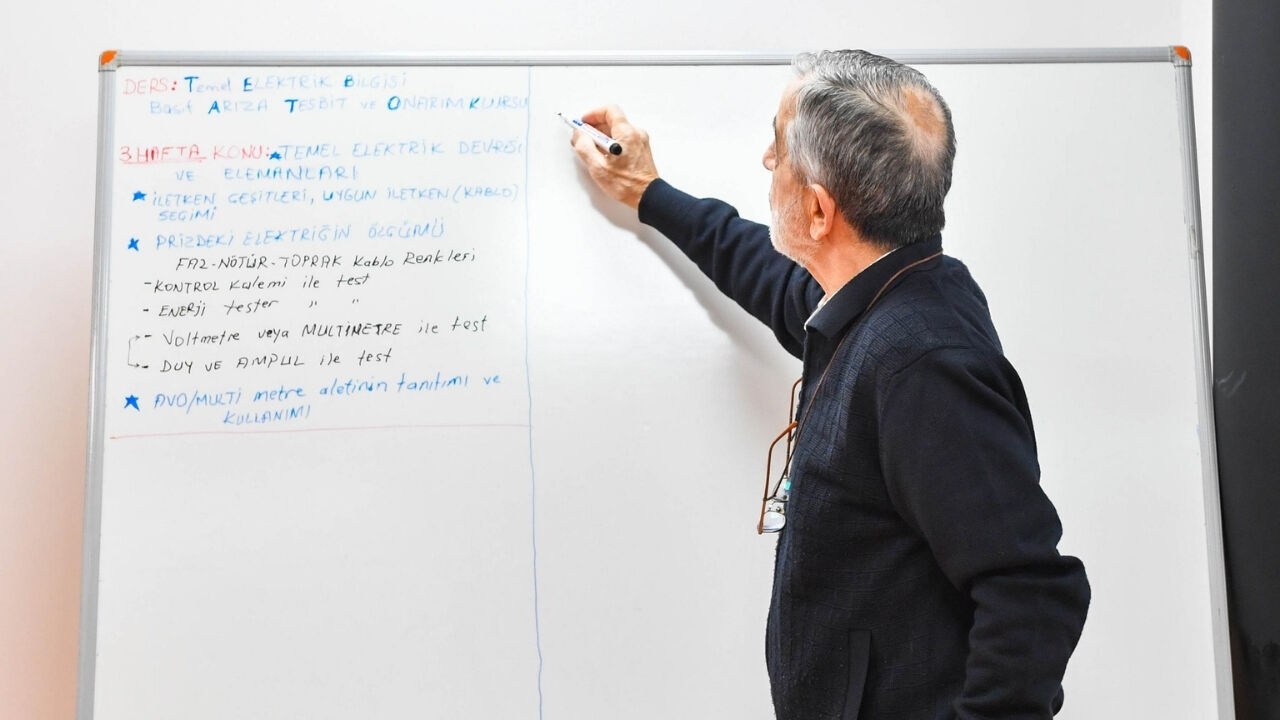 DERS: Temel ELEKTRİK BİLGİSİ
Basit ARIZA TESBİT ve ONARIM KURSU
3.HAFTA KONU: ★TEMEL ELEKTRİK DEVRESİ
VE ELEMANLARI
★ İLETKEN ÇEŞİTLERİ, UYGUN İLETKEN (KABLO)
SEÇİMİ
★ PRİZDEKİ ELEKTRİĞİN ÖLÇÜMÜ
FAZ-NÖTÜR-TOPRAK Kablo Renkleri
-KONTROL Kalemi ile test
- ENERJİ tester " "
- Voltmetre veya MULTİMETRE ile test
- DUY VE AMPUL ile test
★ AVO/MULTİ metre aletinin tanıtımı ve
KULLANIMI